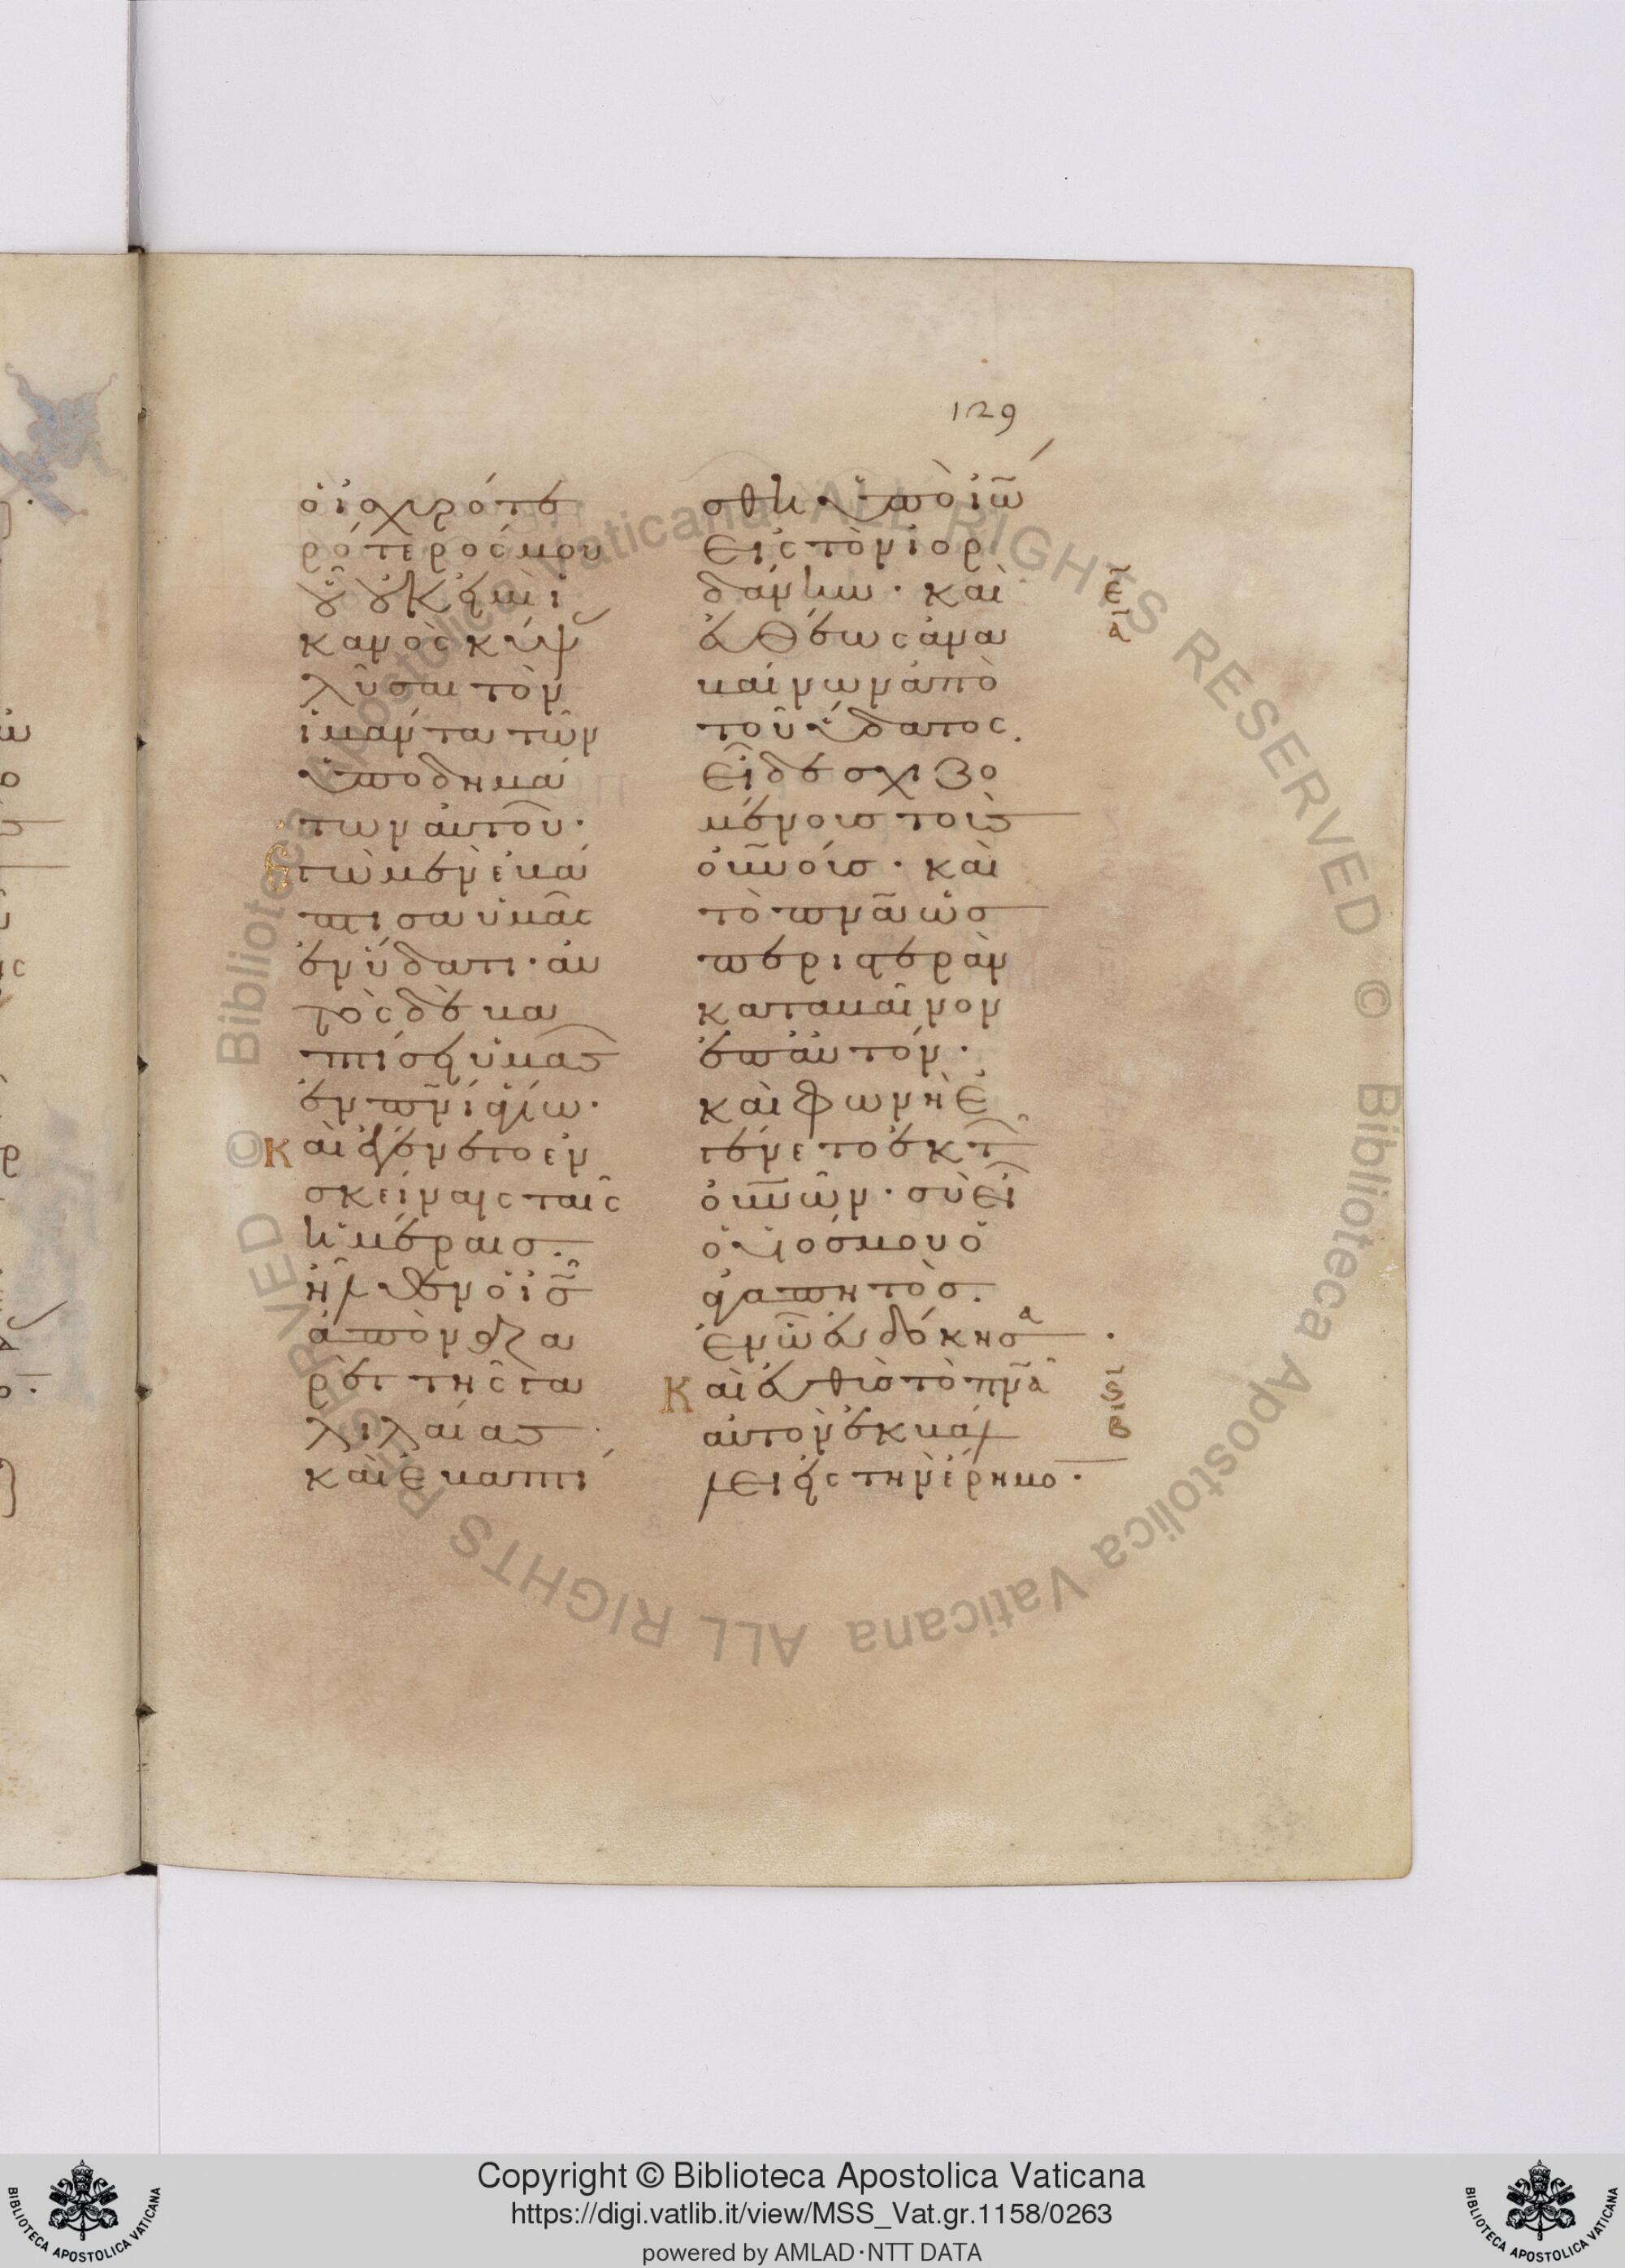 129
ὁ ἰσχυρότε
ρός μου
οὗ οὐκ εἰμὶ ἱ
κανὸς κύψ
λῦσαι τὸν
ἱμάντα τῶν
ὑποδημά
των αὐτοῦ·
Ἐγὼ μὲν ἐβά
πτισα ὑμᾶς
ἐν ὕδατι· αὐ
τὸς δὲ βα
πτίσει ὑμᾶς
ἐν πνι ἁγίω·
Καὶ ἐγένετο ἐν
ἐκείναις ταῖς
ἡμέραις·
ἦλθεν ὁ ις
ἀπὸ ναζα
ρὲτ τῆς γα
λιλαίας
καὶ ἐβαπτί
σθη ὑπὸ ἰω
εἰς τὸν ἰορ
δάνην· καὶ
εὐθέως ἀνα
βαίνων ἀπὸ
τοῦ ὕδατος.
εἶδε σχιζο
μένους τοὺς
οὐνούς· καὶ
τὸ πνα ὡς
περιστερὰν
καταβαῖνον
ἐπ αὐτόν·
καὶ φωνὴ ἐ
γένετο ἐκ τ
οὐνῶν· σὺ εἶ
ὁ υἱός μου ὁ
ἀγαπητὸς.
ἐν ὧ εὐδόκησα·
Καὶ εὐθὺς τὸ πνα
αὐτὸν ἐκβάλ
λει εἰς τὴν ἔρημο·
ε
α
ς
β
Copyright © Biblioteca Apostolica Vaticana
https://digi.vatlib.it/view/MSS_Vat.gr.1158/0263
powered by AMLAD·NTT DATA
BIBLIOTECA APOSTOLICA VATICANA
BIBLIOTECA APOSTOLICA VATICANA
© Biblioteca Apostolica Vaticana ALL RIGHTS RESERVED © Biblioteca Apostolica Vaticana ALL RIGHTS RESERVED